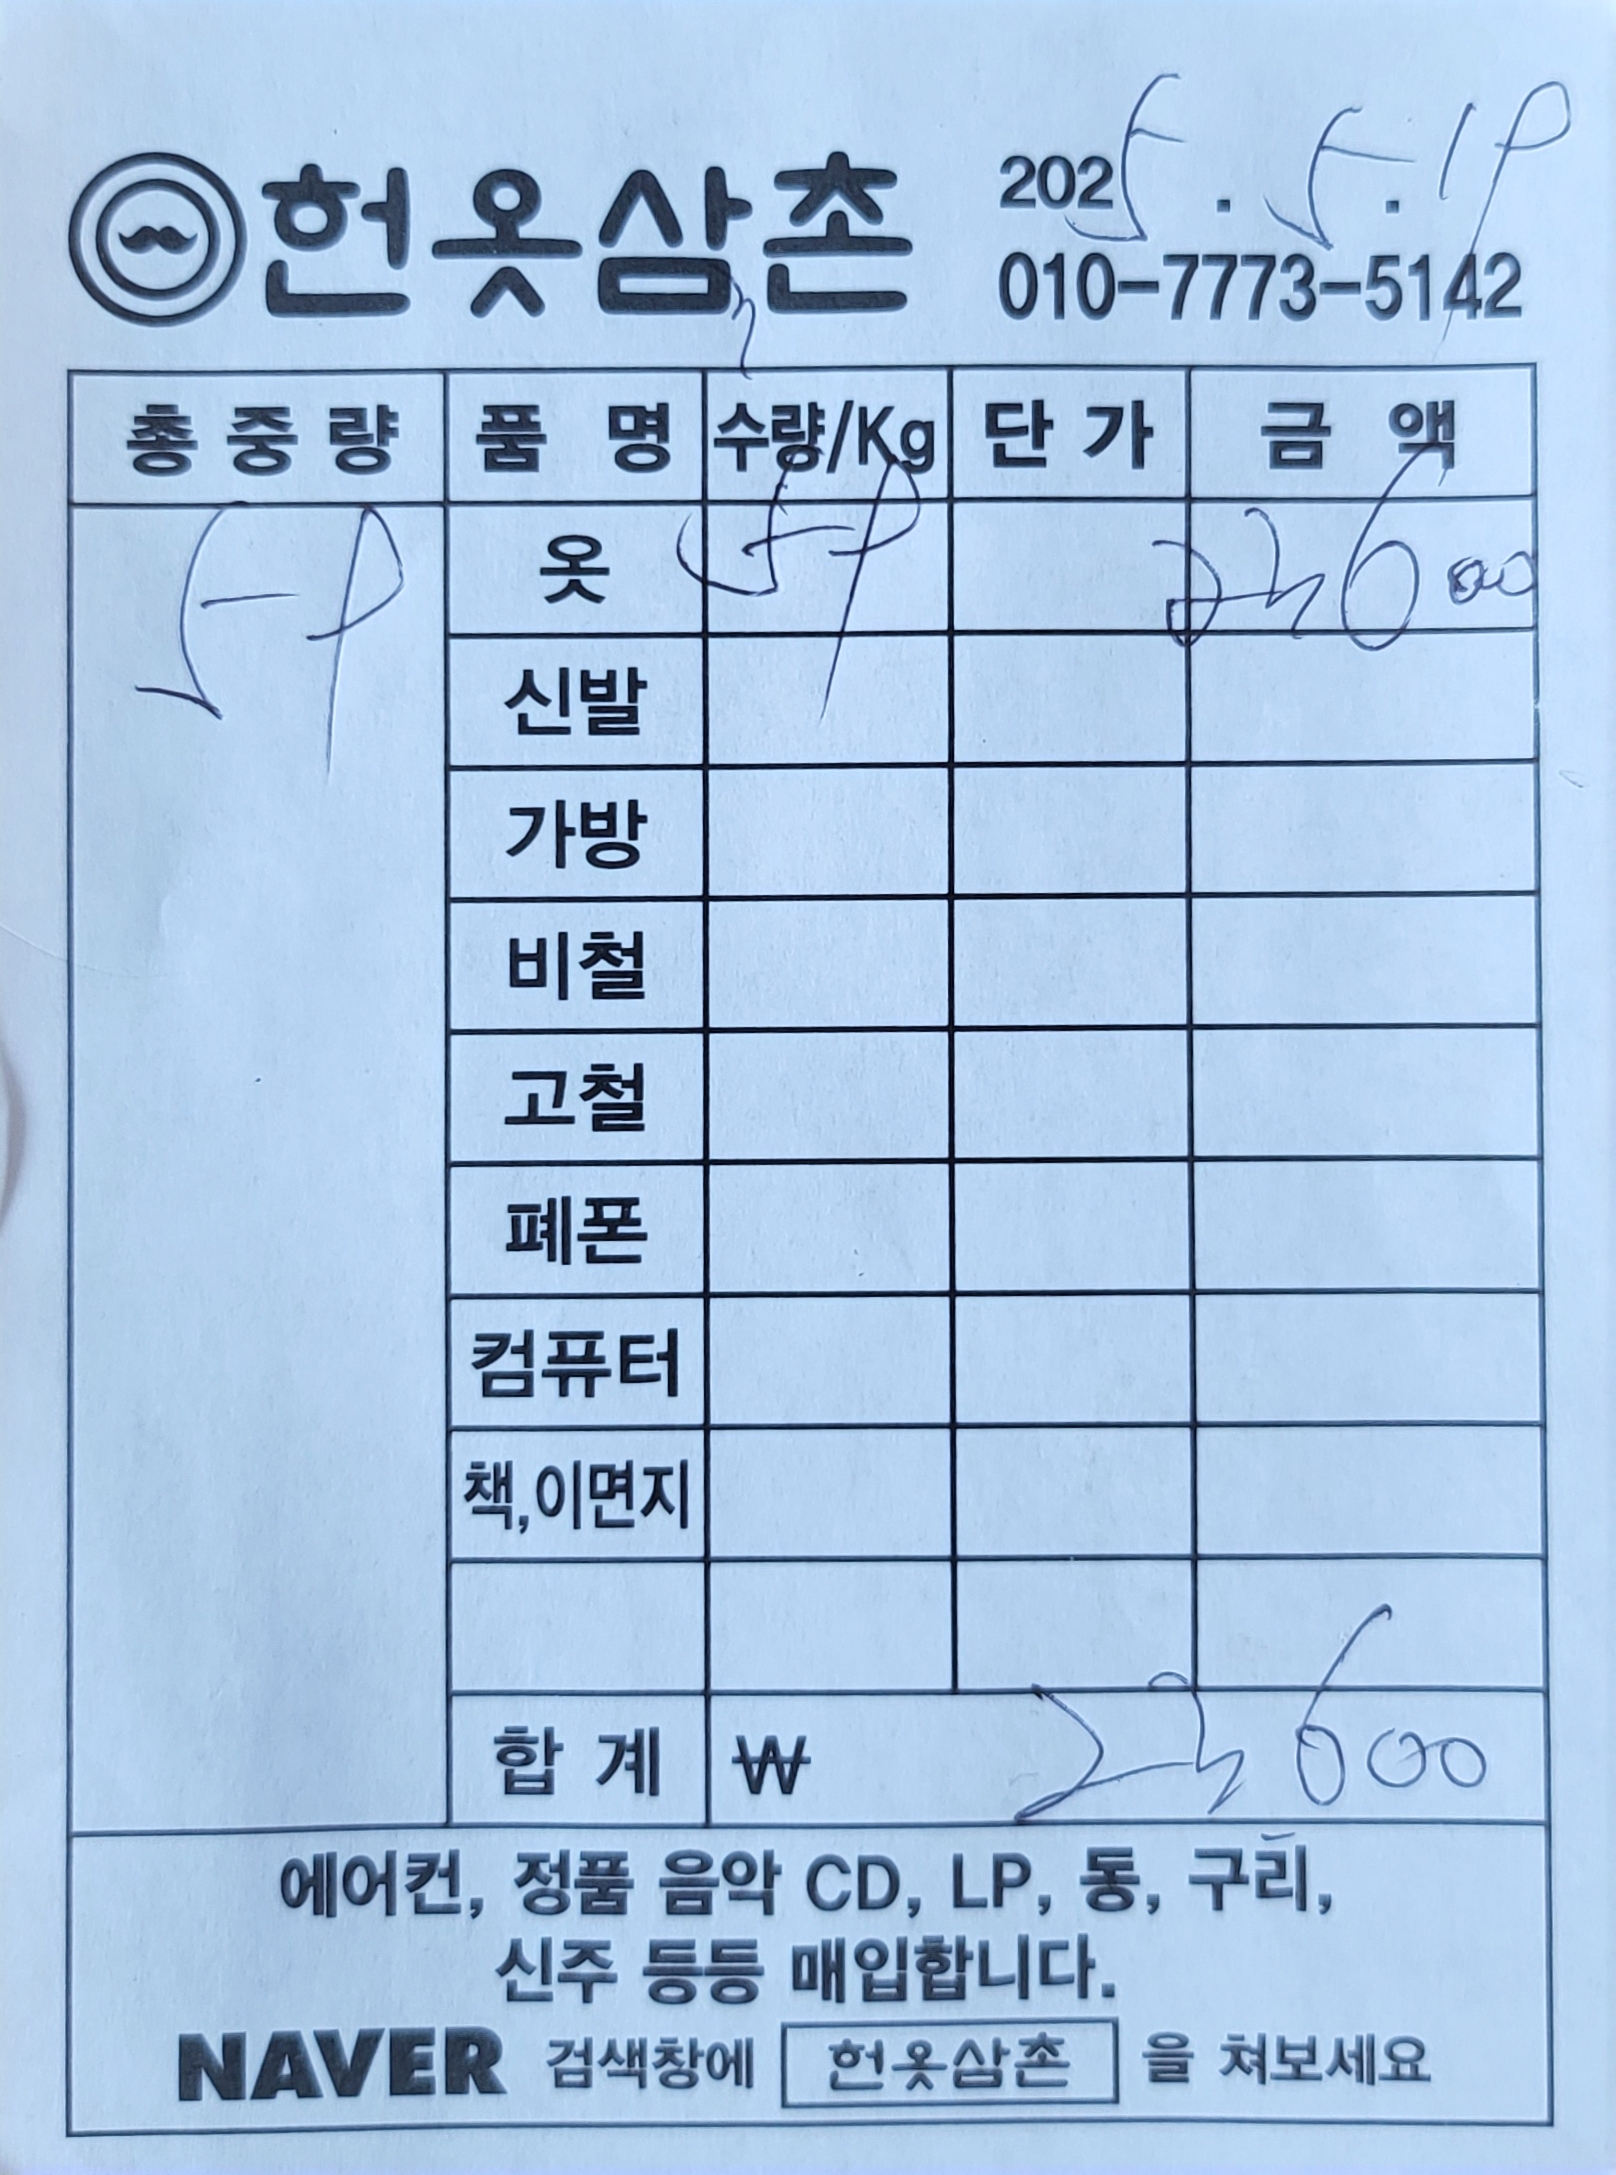 헌옷삼촌 2025. 5. 19
010-7773-5142
총중량 품 명 수량/Kg 단가 금 액
59 옷 59 23600
신발
가방
비철
고철
폐폰
컴퓨터
책,이면지
합 계 ₩ 23600
에어컨, 정품 음악 CD, LP, 동, 구리,
신주 등등 매입합니다.
NAVER 검색창에 헌옷삼촌 을 쳐보세요